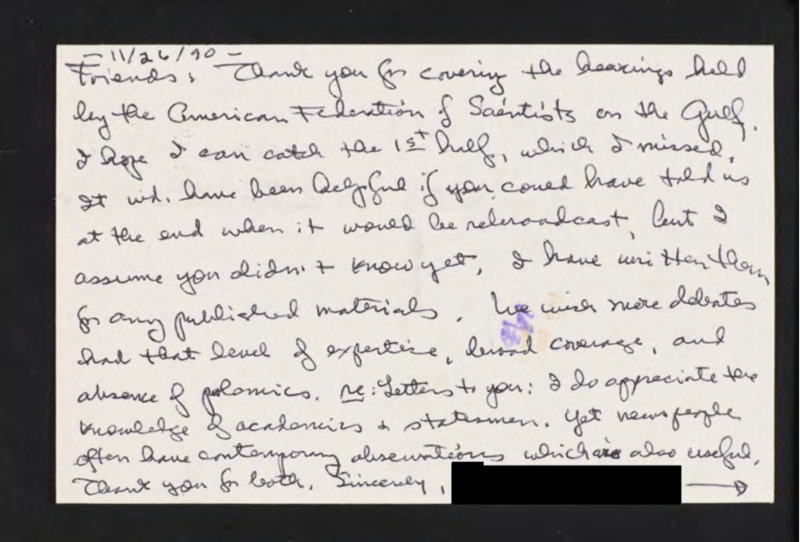 - 11/26/90 -
Friends: Thank you for covering the hearings held
by the American Federation of Scientists on the Gulf.
I hope I can catch the 1st half, which I missed.
It wd. have been helpful if you could have told us
at the end when it would be rebroadcast, but I
assume you didn't know yet. I have written them
for any published materials. We wish more debates
had that level of expertise, broad coverage, and
absence of polemics. re: Letters to you: I do appreciate the
knowledge of academics & statesmen. Yet newspeople
often have contemporary observations which is also useful.
Thank you for both. Sincerely,